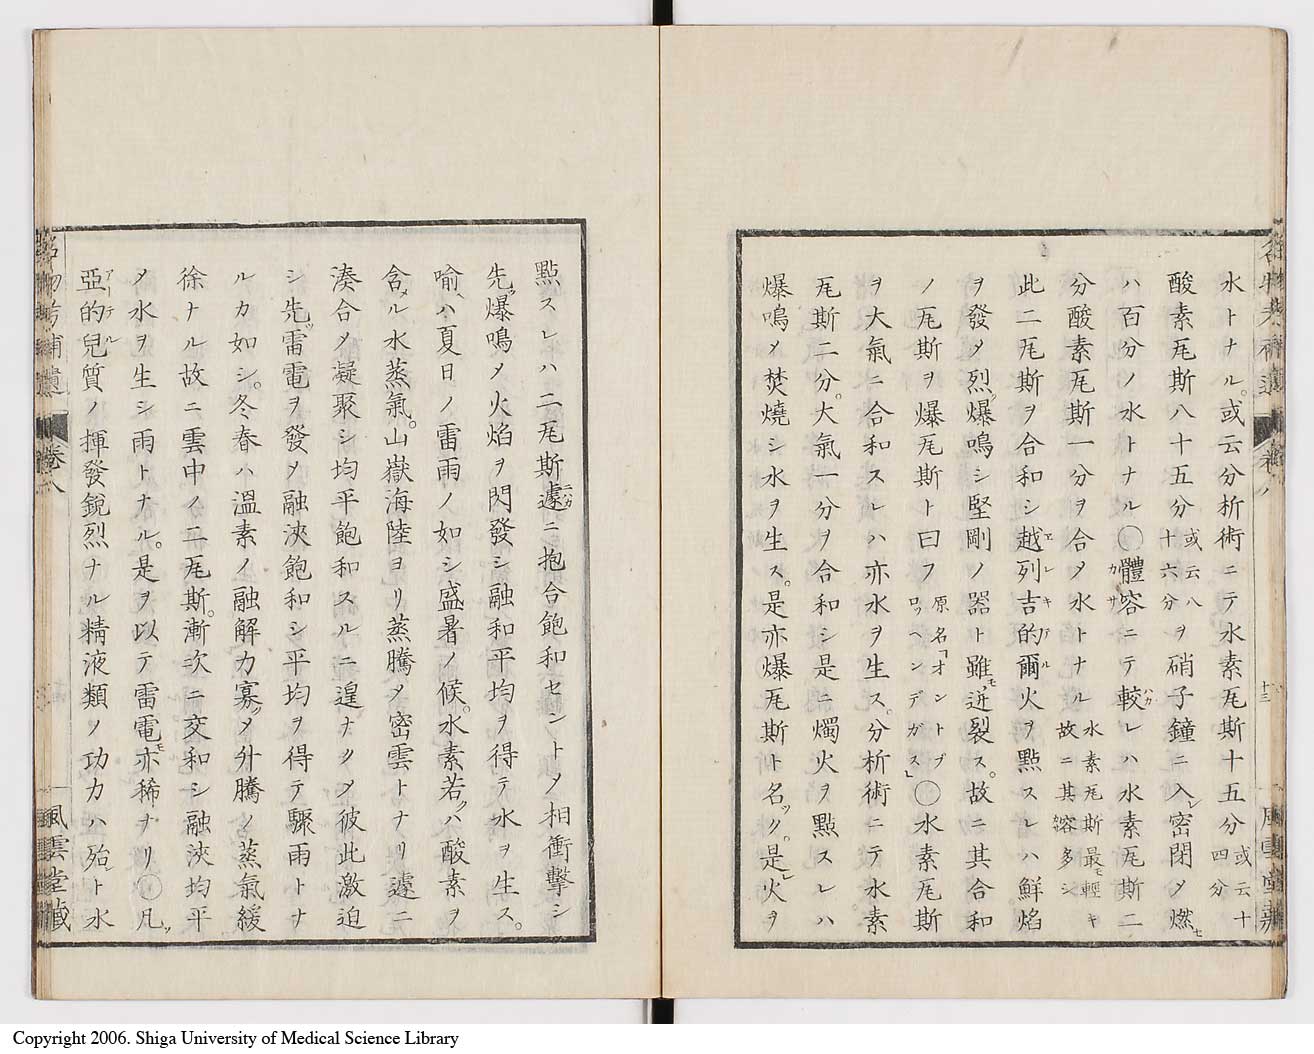 水トナル。或云分析術ニテ水素瓦斯十五分或云十四分
酸素瓦斯八十五分或云八十六分ヲ硝子鐘ニ入レ密閉〆燃セ
ハ百分ノ水トナル〇體容カサニテ較ハカレハ水素瓦斯二
分酸素瓦斯一分ヲ合〆水トナル水素瓦斯最モ輕キ故ニ其容多シ
此二瓦斯ヲ合和シ越列吉的爾エレキテル火ヲ點スレハ鮮焰
ヲ發〆烈ク爆鳴シ堅剛ノ器ト雖モ迸裂ス。故ニ其合和
ノ瓦斯ヲ爆瓦斯ト曰フ原名「オントプロッヘンデガス」〇水素瓦斯
ヲ大氣ニ合和スレハ亦水ヲ生ス。分析術ニテ水素
瓦斯二分。大氣一分ヲ合和シ是ニ燭火ヲ點スレハ
爆鳴〆焚燒シ水ヲ生ス。是亦爆瓦斯ト名ツク。是レ火ヲ
點スレハ二瓦斯遽ニハカニ抱合飽和セント〆相衝擊シ
先ツ爆鳴〆火焰ヲ閃發シ融和平均ヲ得テ水ヲ生ス。
喻ヘハ夏日ノ雷雨ノ如シ盛暑ノ候。水素若クハ酸素ヲ
含メル水蒸氣。山嶽海陸ヨリ蒸騰〆密雲トナリ遽ニ
湊合〆凝聚シ均平飽和スルニ遑ナク〆彼此激迫
シ先ツ雷電ヲ發〆融浹飽和シ平均ヲ得テ驟雨トナ
ルカ如シ。冬春ハ溫素ノ融解力寡ク〆升騰ノ蒸氣緩
徐ナル故ニ雲中ノ二瓦斯。漸次ニ交和シ融浹均平
〆水ヲ生シ雨トナル。是ヲ以テ雷電モ亦稀ナリ〇凡ソ
亞的兒アーテル質ノ揮發銳烈ナル精液類ノ功力ハ殆ント水
卷八
風雲堂藏